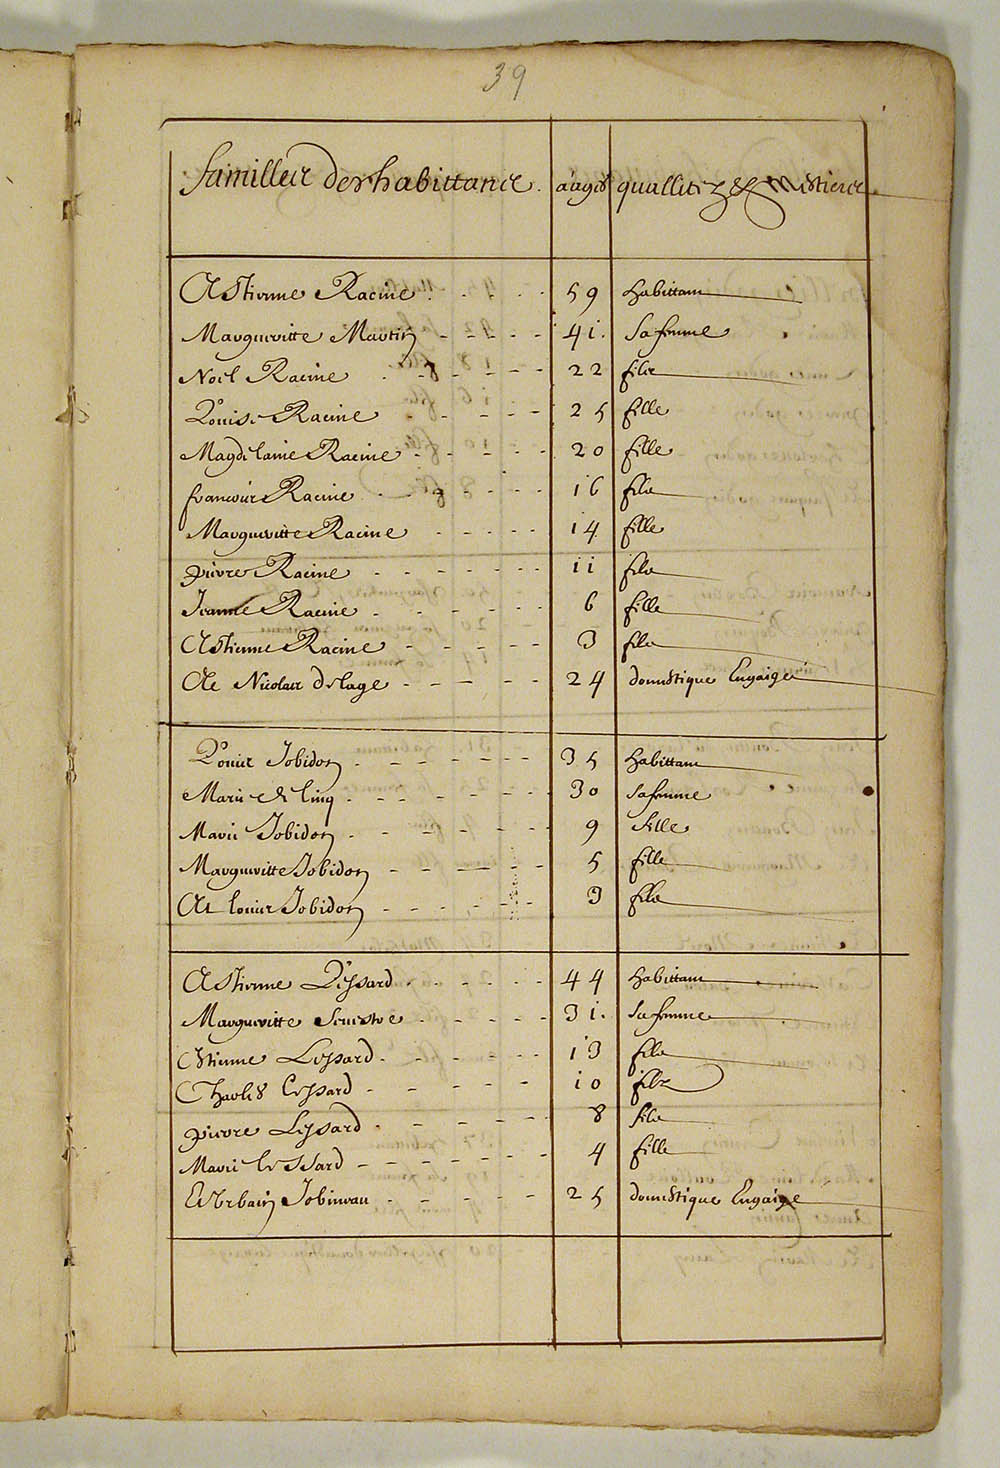 39
familles des habittans. aages quallitez & mestiers
Estienne Racine 59 habittant
Margueritte Martin 41. sa femme
Noel Racine 22 fils
Louise Racine 25 fille
Magdelaine Racine 20 fille
francois Racine 16 fils
Marguerite Racine 14 fille
pierre Racine 11 fils
Jeanne Racine 6 fille
Estienne Racine 3 fils
Et Nicolas delage 24 domestique Engaigé
Louis Jobidon 35 habittant
Marie deligny 30 sa femme
Marie Jobidon 9 fille
Margueritte Jobidon 5 fille
Et louis Jobidon 3 fils
Estienne Lessard 44 habittant
Marguerite Senestre 31. sa femme
Estienne Lessard 13 fils
Charles Lessard 10 fils
pierre Lessard 8 fils
Marie lessard 4 fille
Et Urbain Jobineau 25 domestique Engaigé